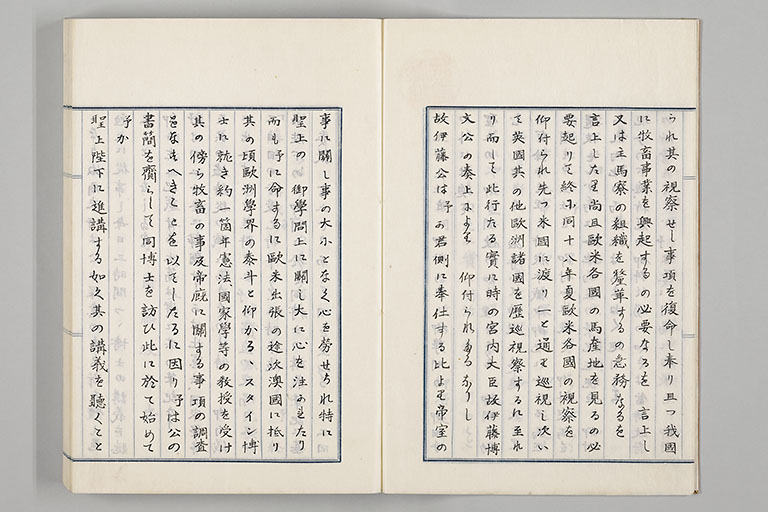 られ其の視察せし事項を復命し奉り且つ我國
に牧畜事業を興起するの必要なるを言上し
又は主馬寮の組織を釐革するの急務なるを
言上したり尚且歐米各國の馬産地を見るの必
要起りて終に同十八年夏歐米各國の視察を
仰付られ先つ米國に渡り一と通り巡視し次い
て英國其の他歐洲諸國を歷巡視察するに至れ
り而して此行たる實に時の宮内大臣故伊藤博
文公の奏上により仰付られたるなりし
故伊藤公は予の君側に奉仕する比より帝室の
事に關し事の大小となく心を勞せられ特に
聖上の御學問上に關し大に心を注かれたり
而も予に命するに歐米出張の途次澳國に抵り
其の頃歐洲學界の泰斗と仰かるゝスタイン博
士に就き約一箇年憲法國家學等の教授を受け
其の傍ら牧畜の事及帝庭に關する事項の調査
をなすへきことを以てしたるに因り予は公の
書簡を齎らして同博士を訪ひ此に於て始めて
予か
聖上陛下に進講する如く其の講義を聽くこと